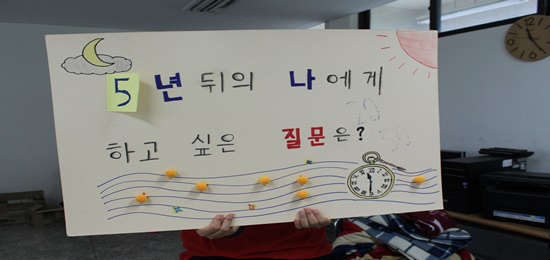 5년 뒤의 나에게
하고 싶은 질문은?